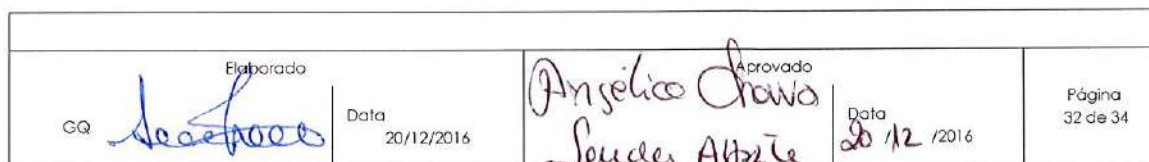 Elaborado
GQ
Data
20/12/2016
Aprovado
Angélica
Data
20/12/2016
Página
32 de 34